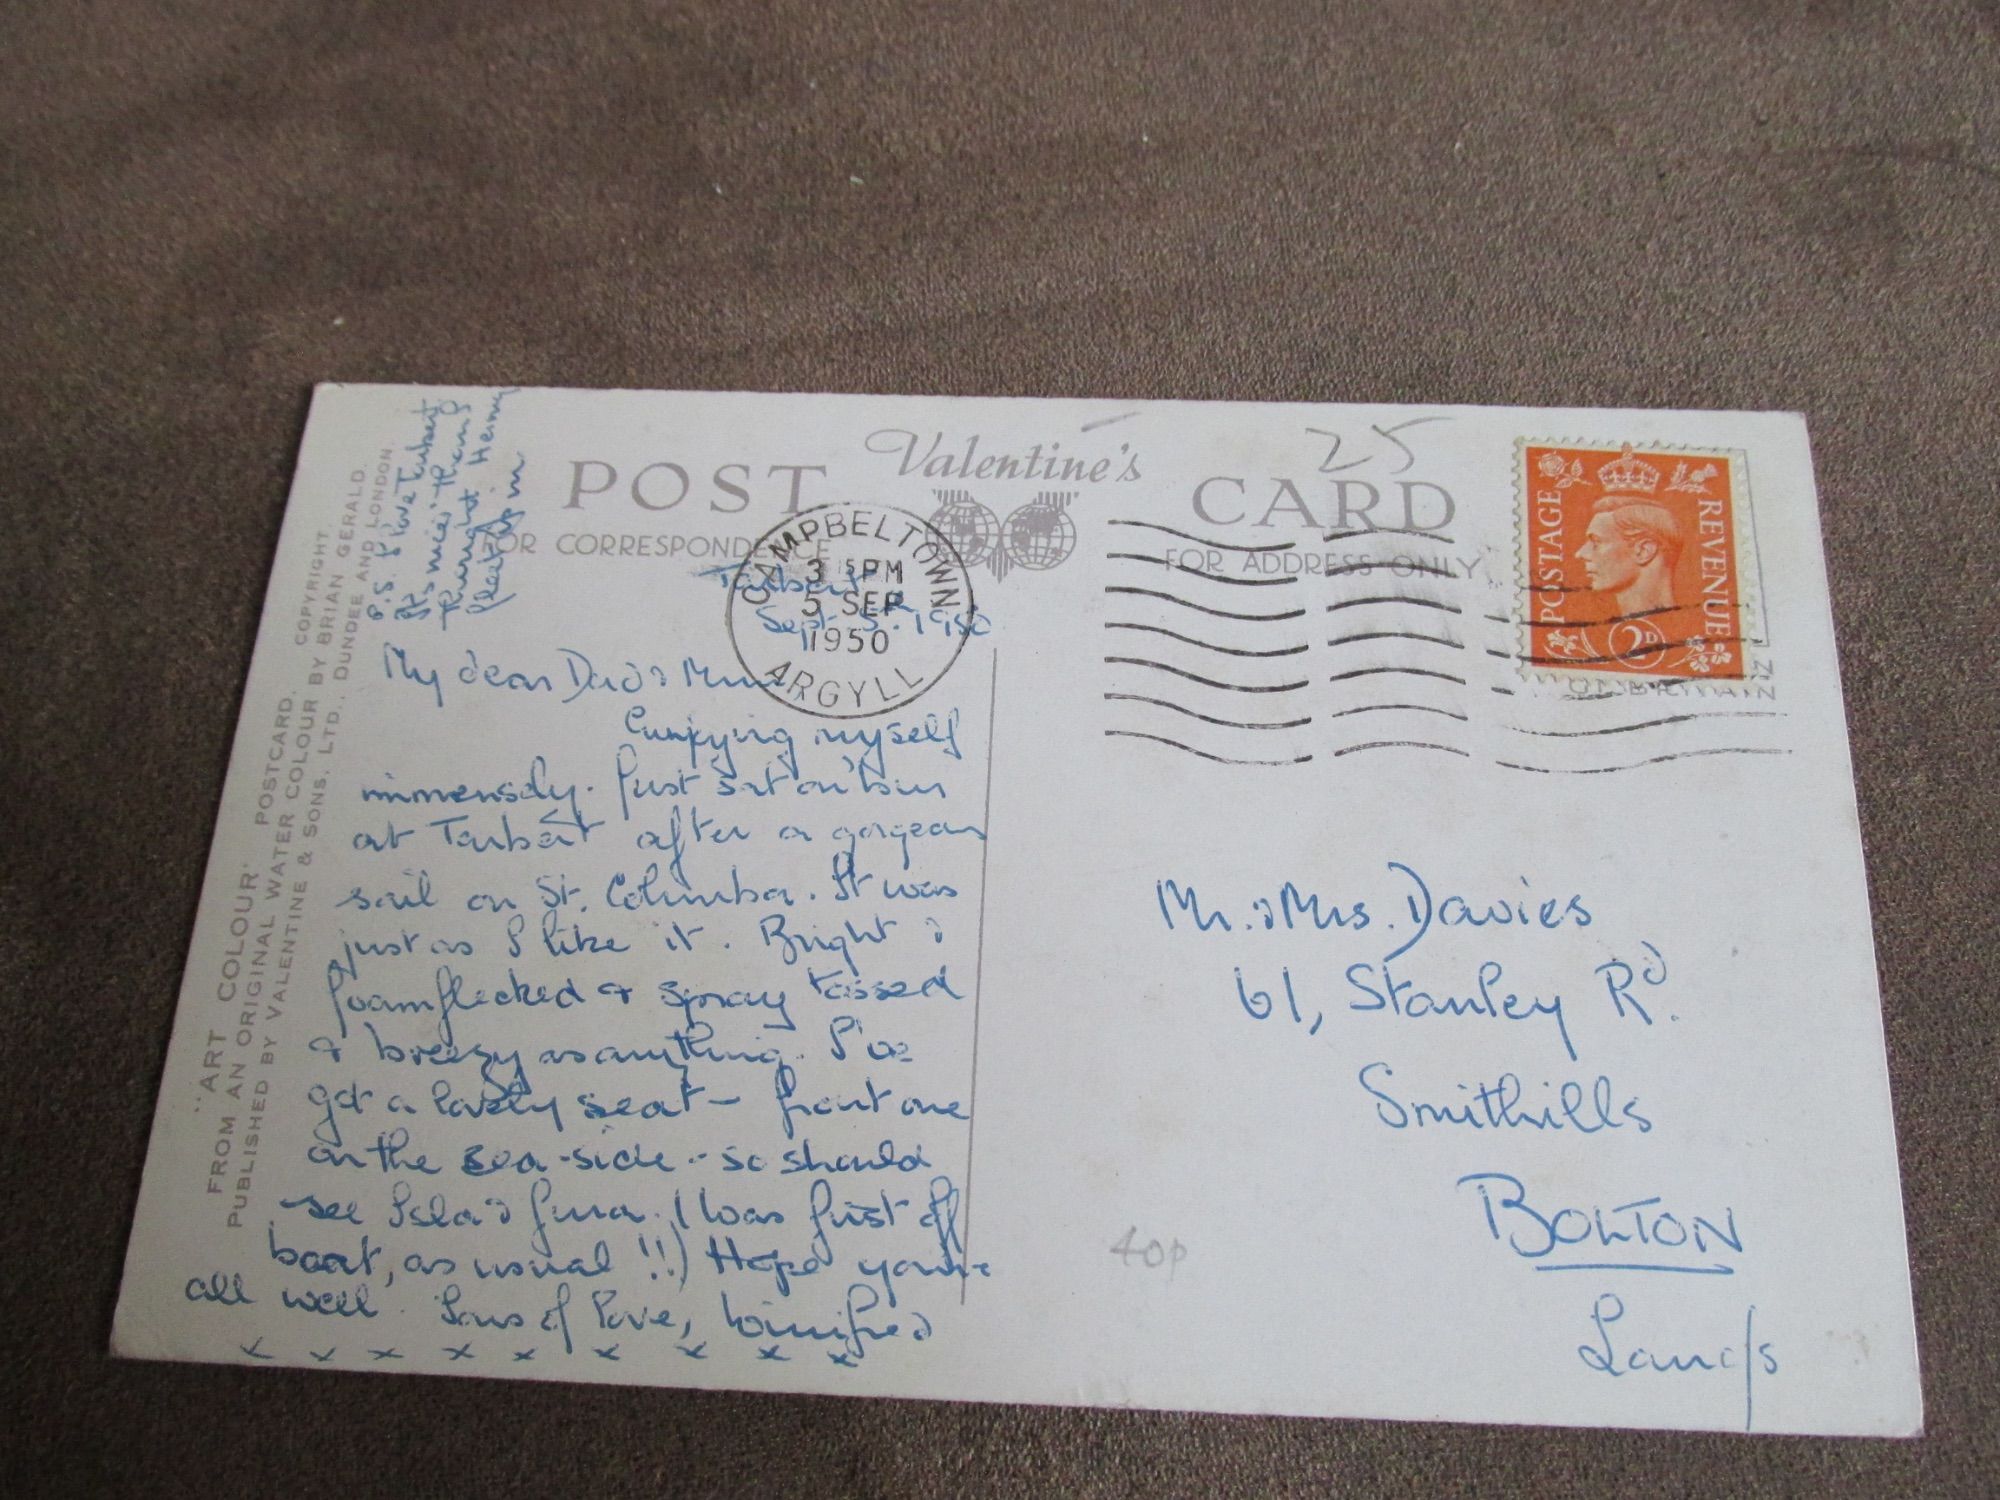 Valentine's
POST CARD
FOR CORRESPONDENCE
FOR ADDRESS ONLY
25
POSTAGE REVENUE
2D
CAMPBELTOWN
3 15 PM
5 SEP
1950
ARGYLL
Tarbert
Sept. 5. 1950
My dear Dad & Mum
Enjoying myself
immensely. Just sat on bus
at Tarbert after a gorgeous
sail on St. Columba. It was
just as I like it. Bright &
foamflecked & spray tossed
& breezy as anything. I've
got a lovely seat - front one
on the sea-side - so should
see Isla & Jura. (Was first off
boat, as usual!!) Hope you're
all well. Lots of love, Winifred
x x x x x x x x x
P.S. I love Tarbert
It's nice
in
Mr. & Mrs. Davies
61, Stanley Rd.
Smithills
BOLTON
Lancs
40p
"ART COLOUR" POSTCARD.
FROM AN ORIGINAL WATER COLOUR BY BRIAN GERALD.
COPYRIGHT.
PUBLISHED BY VALENTINE & SONS, LTD., DUNDEE AND LONDON.